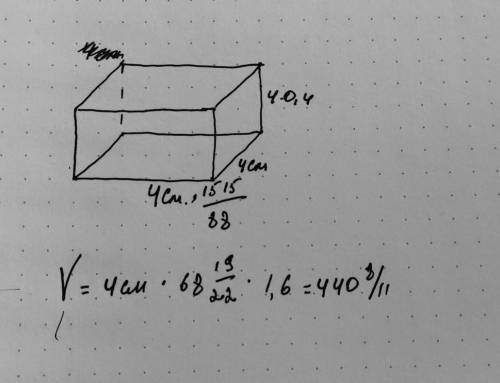 4·0,4
4см
4см · 15 15/88
V = 4см · 68 19/22 · 1,6 = 440 8/11